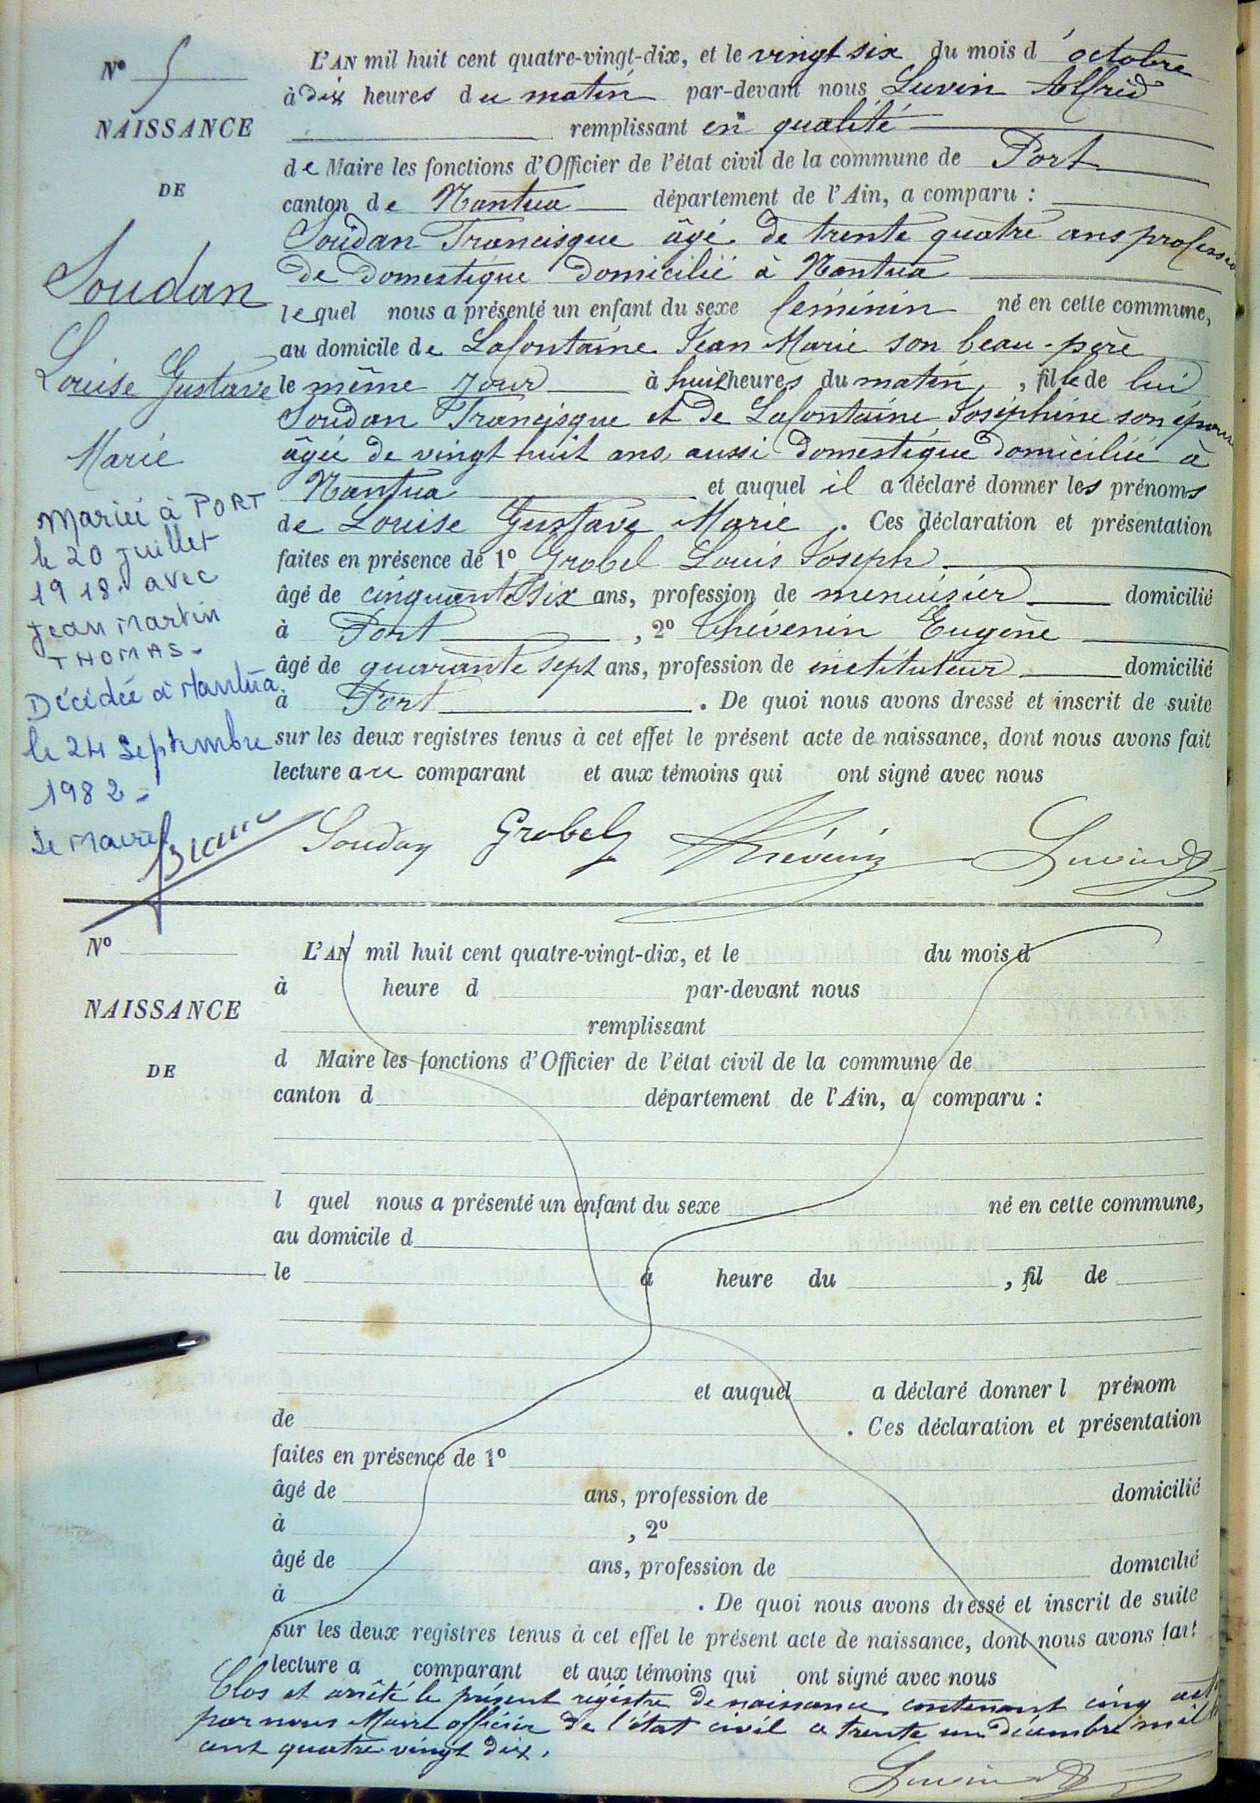 N° 5
NAISSANCE
DE
Soudan
Louise Gustave
Marie
Mariée à PORT
le 20 juillet
1918 avec
Jean Martin
THOMAS -
Décédée à Nantua
le 24 Septembre
1982 -
Le Maire
L'AN mil huit cent quatre-vingt-dix, et le vingt six du mois d'octobre
à dix heures du matin par-devant nous Luvin Alfred
remplissant en qualité
de Maire les fonctions d'Officier de l'état civil de la commune de Port
canton de Nantua département de l'Ain, a comparu :
Soudan Francisque âgé de trente quatre ans profession
de domestique domicilié à Nantua
lequel nous a présenté un enfant du sexe féminin né en cette commune,
au domicile de Lafontaine Jean Marie son beau-père
le même jour à huit heures du matin, fille de lui
Soudan Francisque et de Lafontaine Joséphine son épouse
âgée de vingt huit ans, aussi domestique domiciliée à
Nantua et auquel il a déclaré donner les prénoms
de Louise Gustave Marie. Ces déclaration et présentation
faites en présence de 1° Grobel Louis Joseph
âgé de cinquante six ans, profession de menuisier domicilié
à Port, 2° Thévenin Eugène
âgé de quarante sept ans, profession de instituteur domicilié
à Port. De quoi nous avons dressé et inscrit de suite
sur les deux registres tenus à cet effet le présent acte de naissance, dont nous avons fait
lecture au comparant et aux témoins qui ont signé avec nous
Soudan Grobel Thévenin Luvin
N°
NAISSANCE
DE
L'AN mil huit cent quatre-vingt-dix, et le du mois d
à heure d par-devant nous
remplissant
d Maire les fonctions d'Officier de l'état civil de la commune de
canton d département de l'Ain, a comparu :
l quel nous a présenté un enfant du sexe né en cette commune,
au domicile d
le à heure du , fil de
et auquel a déclaré donner l prénom
de . Ces déclaration et présentation
faites en présence de 1°
âgé de ans, profession de domicilié
à , 2°
âgé de ans, profession de domicilié
à . De quoi nous avons dressé et inscrit de suite
sur les deux registres tenus à cet effet le présent acte de naissance, dont nous avons fait
lecture a comparant et aux témoins qui ont signé avec nous
Clos et arrêté le présent régistre de naissance contenant cinq actes
par nous Maire officier de l'état civil a trente un décembre mil
cent quatre vingt dix.
Luvin